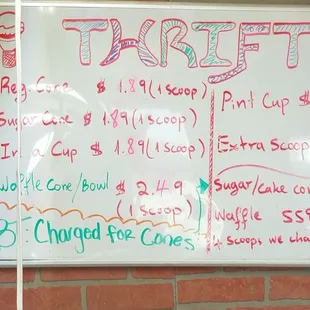 THRIFT
Reg. Cone $ 1.89 (1 scoop)
Sugar Cone $ 1.89 (1 scoop)
In a Cup $ 1.89 (1 scoop)
Waffle Cone/Bowl $ 2.49
(1 scoop)
: Charged for Cones
Pint Cup $
Extra Scoop
Sugar/cake con
Waffle 55¢
4 scoops we cha